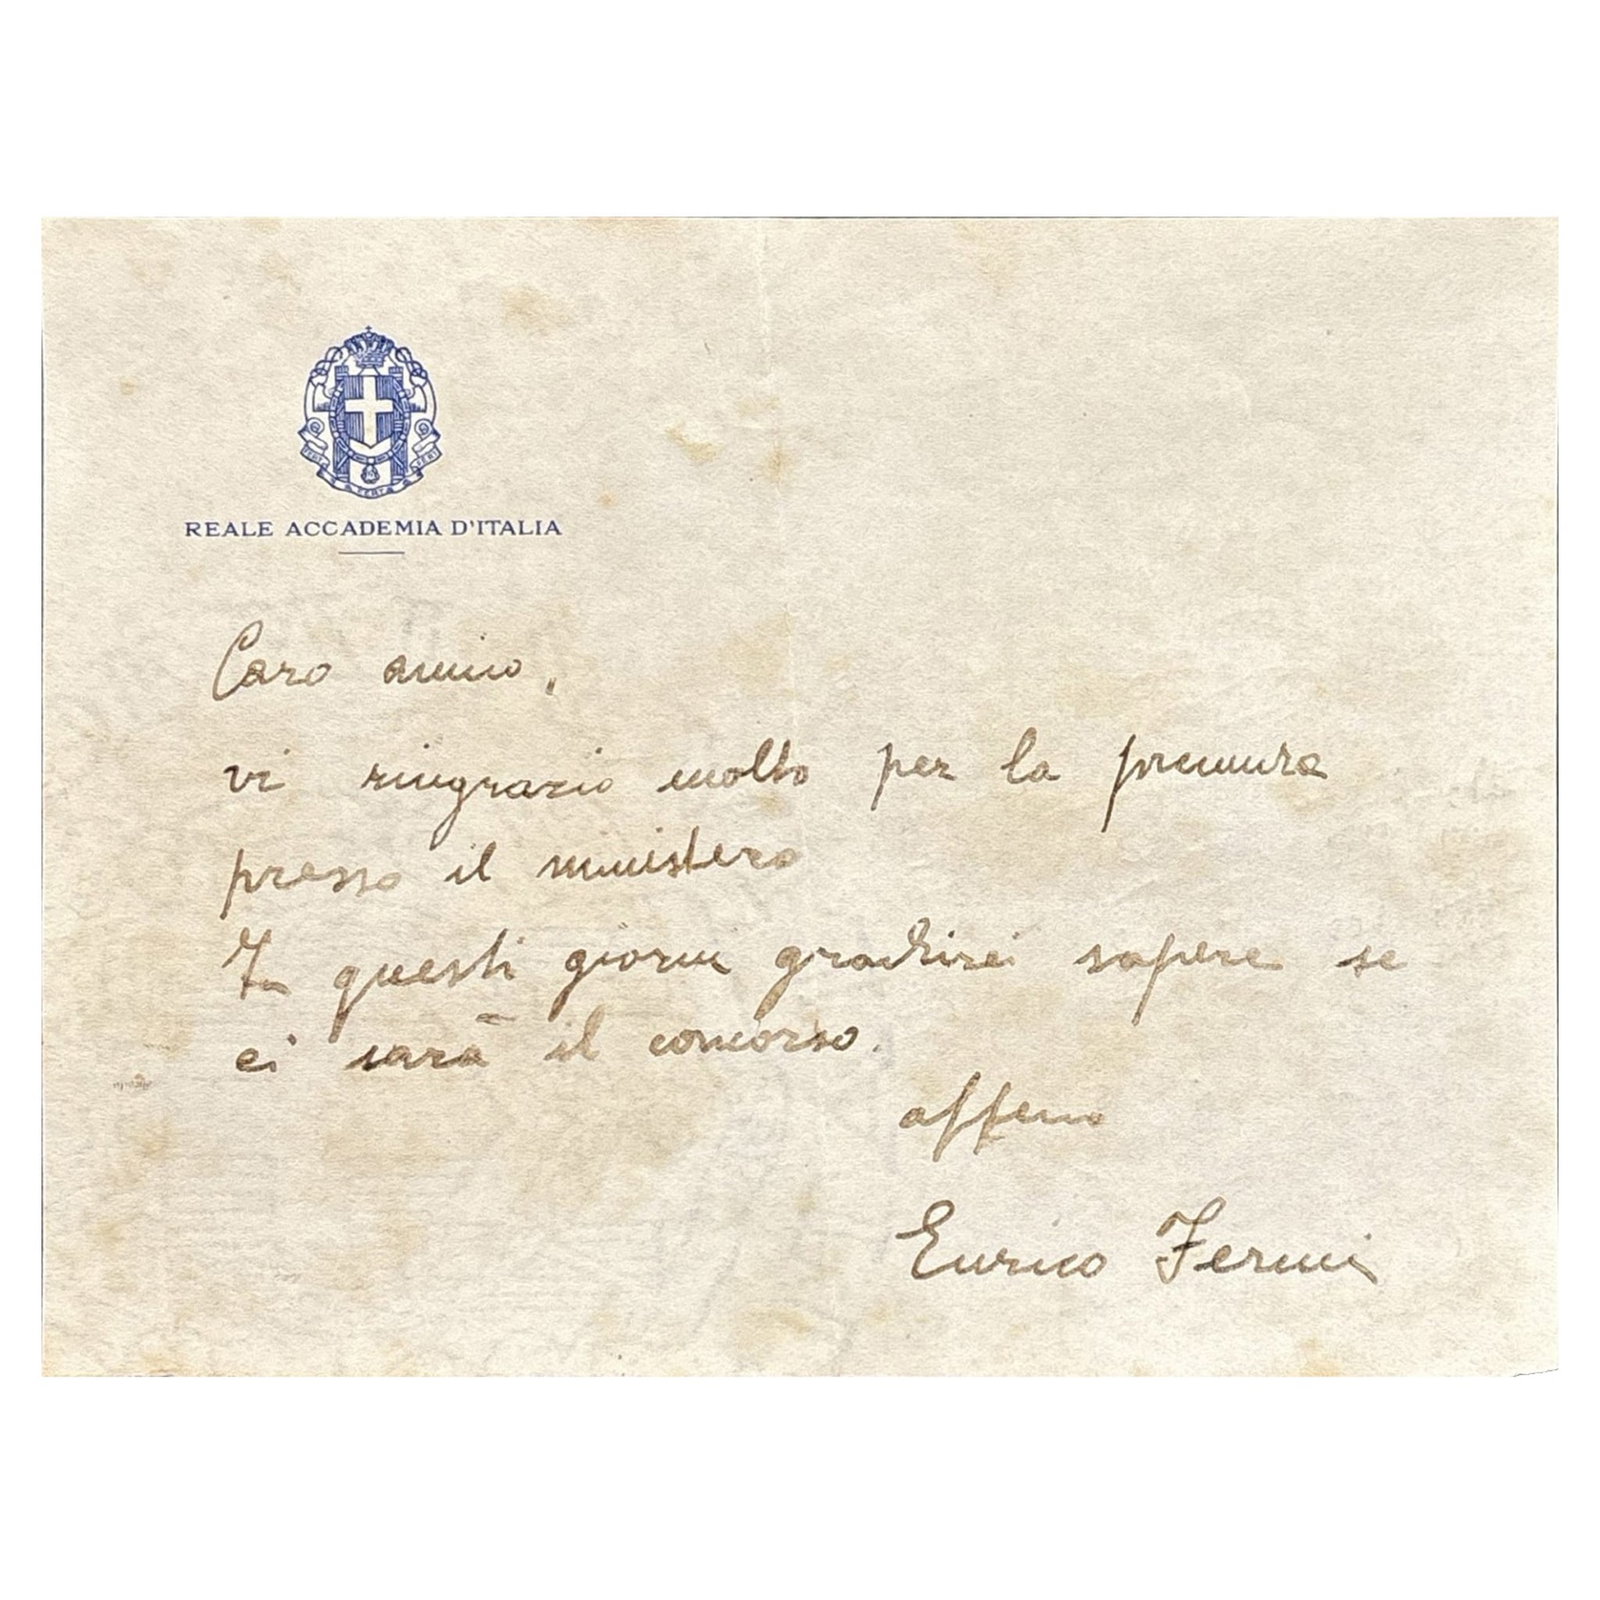 FERT FERT FERT
REALE ACCADEMIA D'ITALIA
Caro amico,
vi ringrazio molto per la premura
presso il ministero
In questi giorni gradirei sapere se
ci sarà il concorso.
affemo
Enrico Fermi